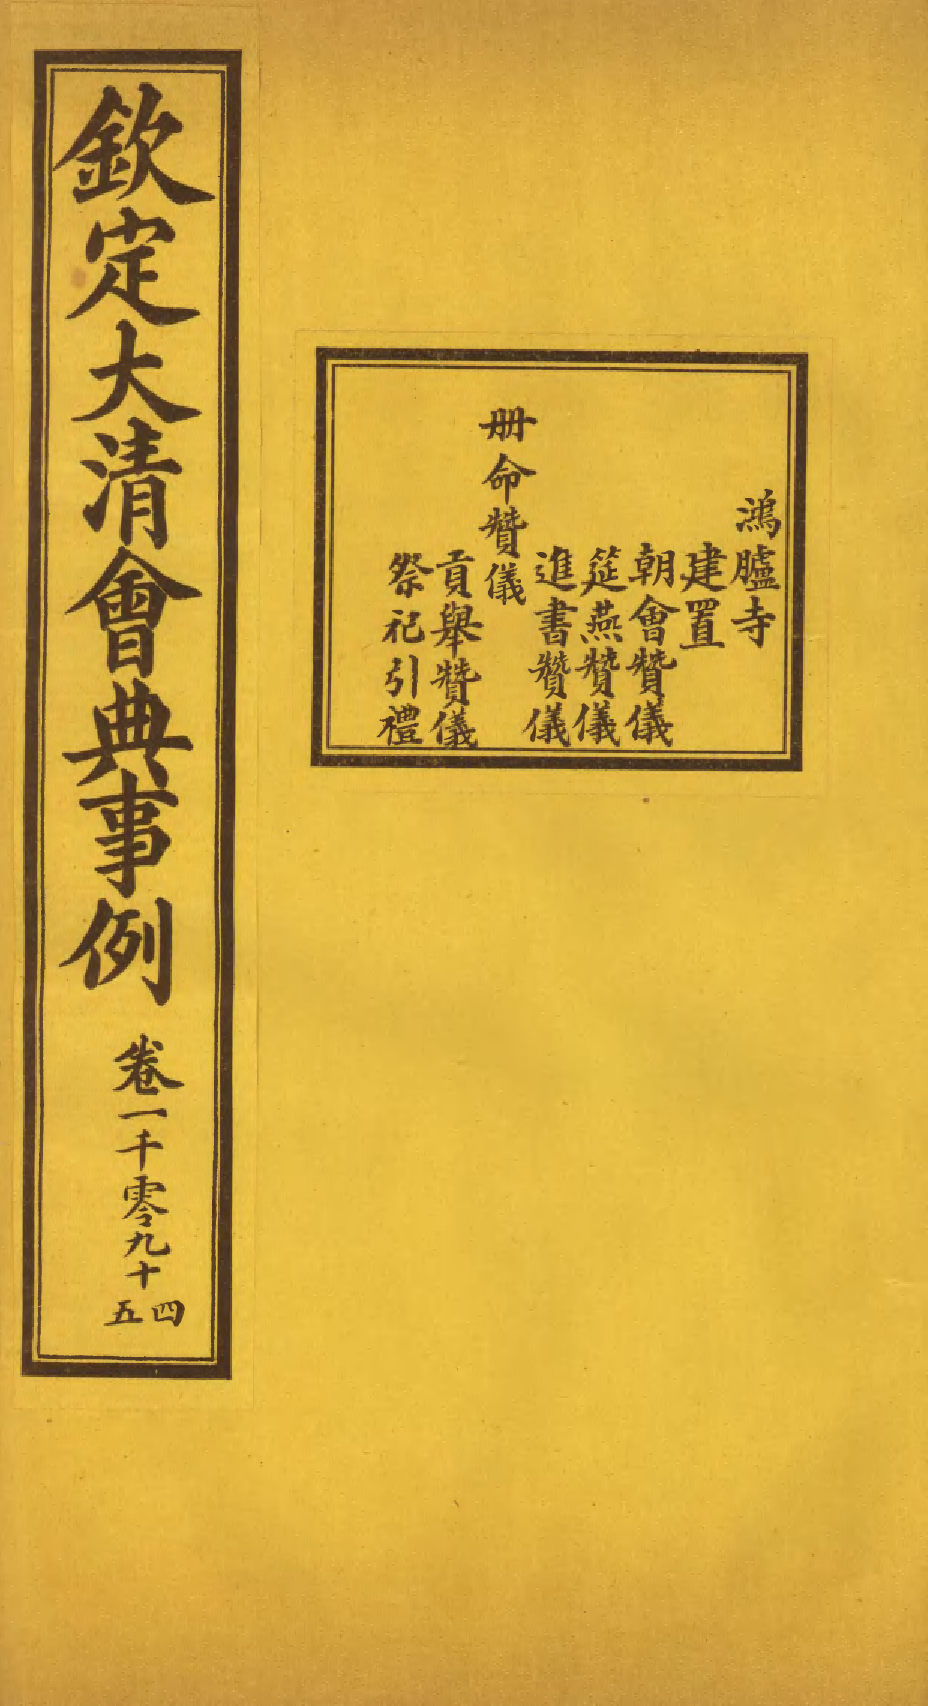 鴻臚寺
建置
朝會贊儀
筵燕贊儀
進書贊儀
册命贊儀
貢舉贊儀
祭祀引禮
欽定大清會典事例
卷一千零九十四五